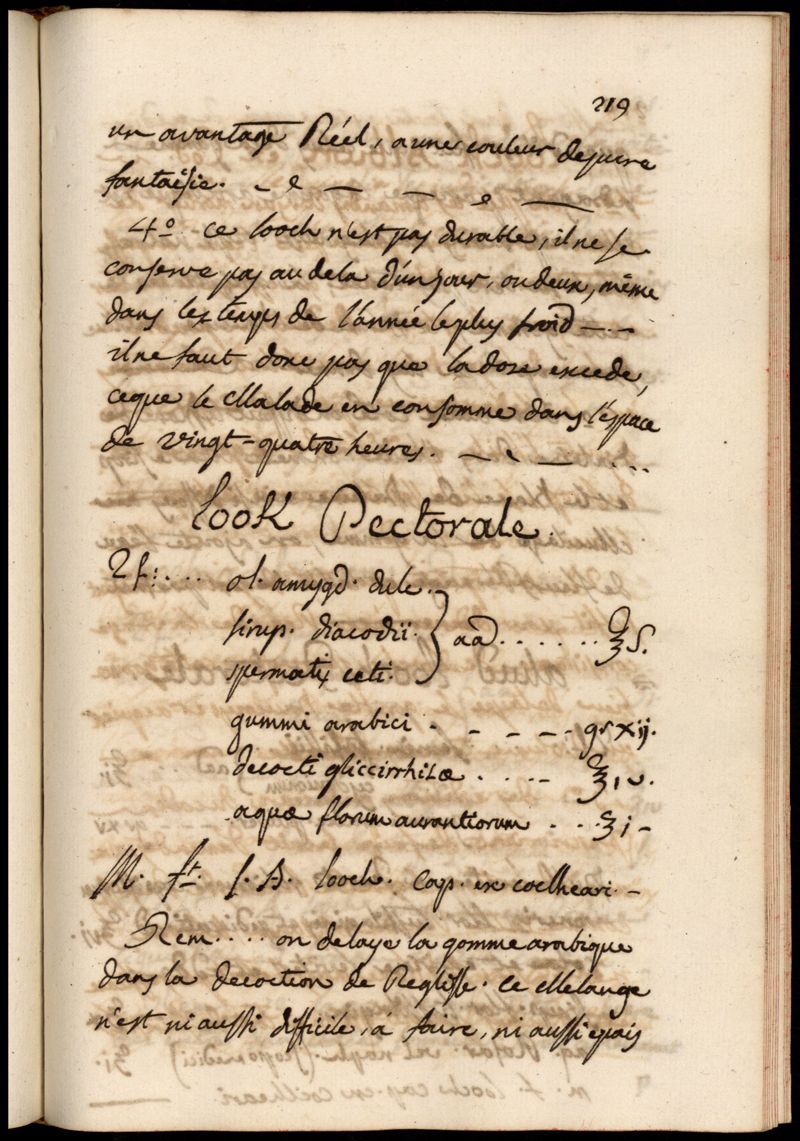 219
un avantage Réel, a une couleur de pure
fantaisie.
4º. ce looch n'est pas durable, il ne se
conserve pas au dela d'un jour, ou deux, même
dans les temps de l'année le plus froid
il ne faut donc pas que la dose excede,
ce que le Malade en consomme dans l'espace
de vingt-quatre heures.
look Pectorale.
♃: .... ol. amygd. dulc.
sirup. diacodii. } aa ...... ℥ S.
spermatis ceti.
gummi arabici . - - - - gr xij.
decocti gliccirrhizæ .... ℥ iv.
aquæ florum aurantiorum ... ʒ i -
M. ft. s. A. looch. Cap. ex cochleari. -
Rem .... on delaye la gomme arabique
dans la decoction de Reglisse. ce Melange
n'est ni aussi difficile, á faire, ni aussi epais